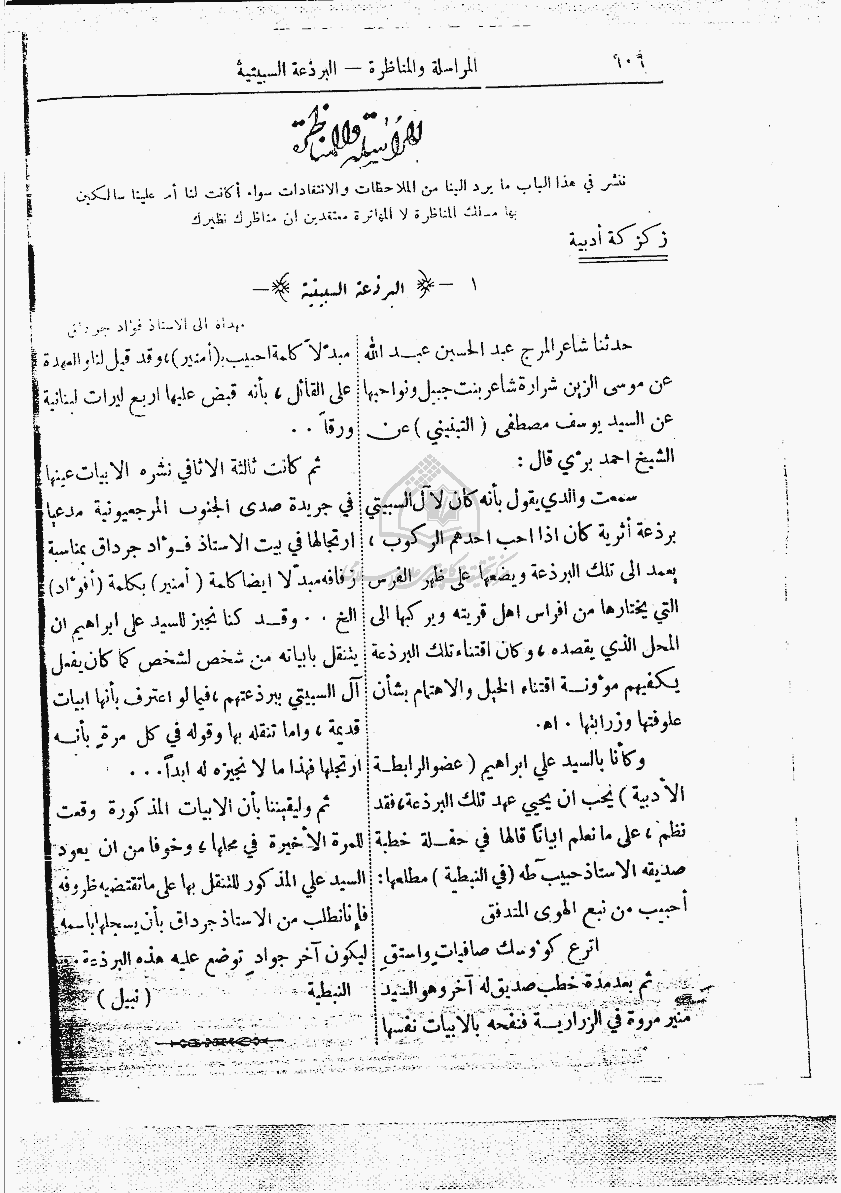 ٩٠٦
المراسلة والمناظرة — البرذعة السبيتية
المراسلة والمناظرة
ننشر في هذا الباب ما يرد الينا من الملاحظات والانتقادات سواء أكانت لنا أم علينا سالكين
بها مسلك المناظرة لا المهاترة معتقدين ان مناظرك نظيرك
زكزكة أدبية
١ — البرذعة السبيتية —
مهداة الى الاستاذ فؤاد جرداق
حدثنا شاعر المرج عبد الحسين عبد الله
عن موسى الزين شرارة شاعر بنت جبيل ونواحيها
عن السيد يوسف مصطفى ( التبنيني ) عن
الشيخ احمد بري قال :
سمعت والدي يقول بأنه كان لآل السبيتي
برذعة أثرية كان اذا احب احدهم الركوب ،
يعمد الى تلك البرذعة ويضعها على ظهر الفرس
التي يختارها من افراس اهل قريته ويركبها الى
المحل الذي يقصده ، وكان اقتناء تلك البرذعة
يكفيهم مؤونة اقتناء الخيل والاهتمام بشأن
علوفتها وزرائبها . اه.
وكأنا بالسيد علي ابراهيم ( عضو الرابطة
الأدبية ) يحب ان يحيي عهد تلك البرذعة ، فقد
نظم ، على ما نعلم ابياتا قالها في حفلة خطبة
صديقه الاستاذ حبيب طه (في النبطية ) مطلعها:
أحبيب من نبع الهوى المتدفق
اترع كؤوسك صافيات واستق
ثم بعد مدة خطب صديق له آخر وهو السيد
منير مروة في الزرارية فنفحه بالابيات نفسها
مبدلاً كلمة احبيب بـ (أمنير) ، وقد قيل لنا والعهدة
على القائل ، بأنه قبض عليها اربع ليرات لبنانية
ورقاً . .
ثم كانت ثالثة الاثافي نشره الابيات عينها
في جريدة صدى الجنوب المرجعيونية مدعيا
ارتجالها في بيت الاستاذ فؤاد جرداق بمناسبة
زفافه مبدلا ايضا كلمة ( أمنير ) بكلمة (أفؤاد)
الخ . . وقد كنا نجيز للسيد علي ابراهيم ان
يتنقل بابياته من شخص لشخص كما كان يفعل
آل السبيتي ببرذعتهم ، فيما لو اعترف بأنها ابيات
قديمة ، واما تنقله بها وقوله في كل مرة بأنه
ارتجلها فهذا ما لا نجيزه له ابداً . . .
ثم وليقيننا بأن الابيات المذكورة وقعت
للمرة الأخيرة في محلها ، وخوفا من ان يعود
السيد علي المذكور للتنقل بها على ما تقتضيه ظروفه
فإننا نطلب من الاستاذ جرداق بأن يسجلها باسمه
ليكون آخر جواد توضع عليه هذه البرذعة . .
النبطية ( نبيل )